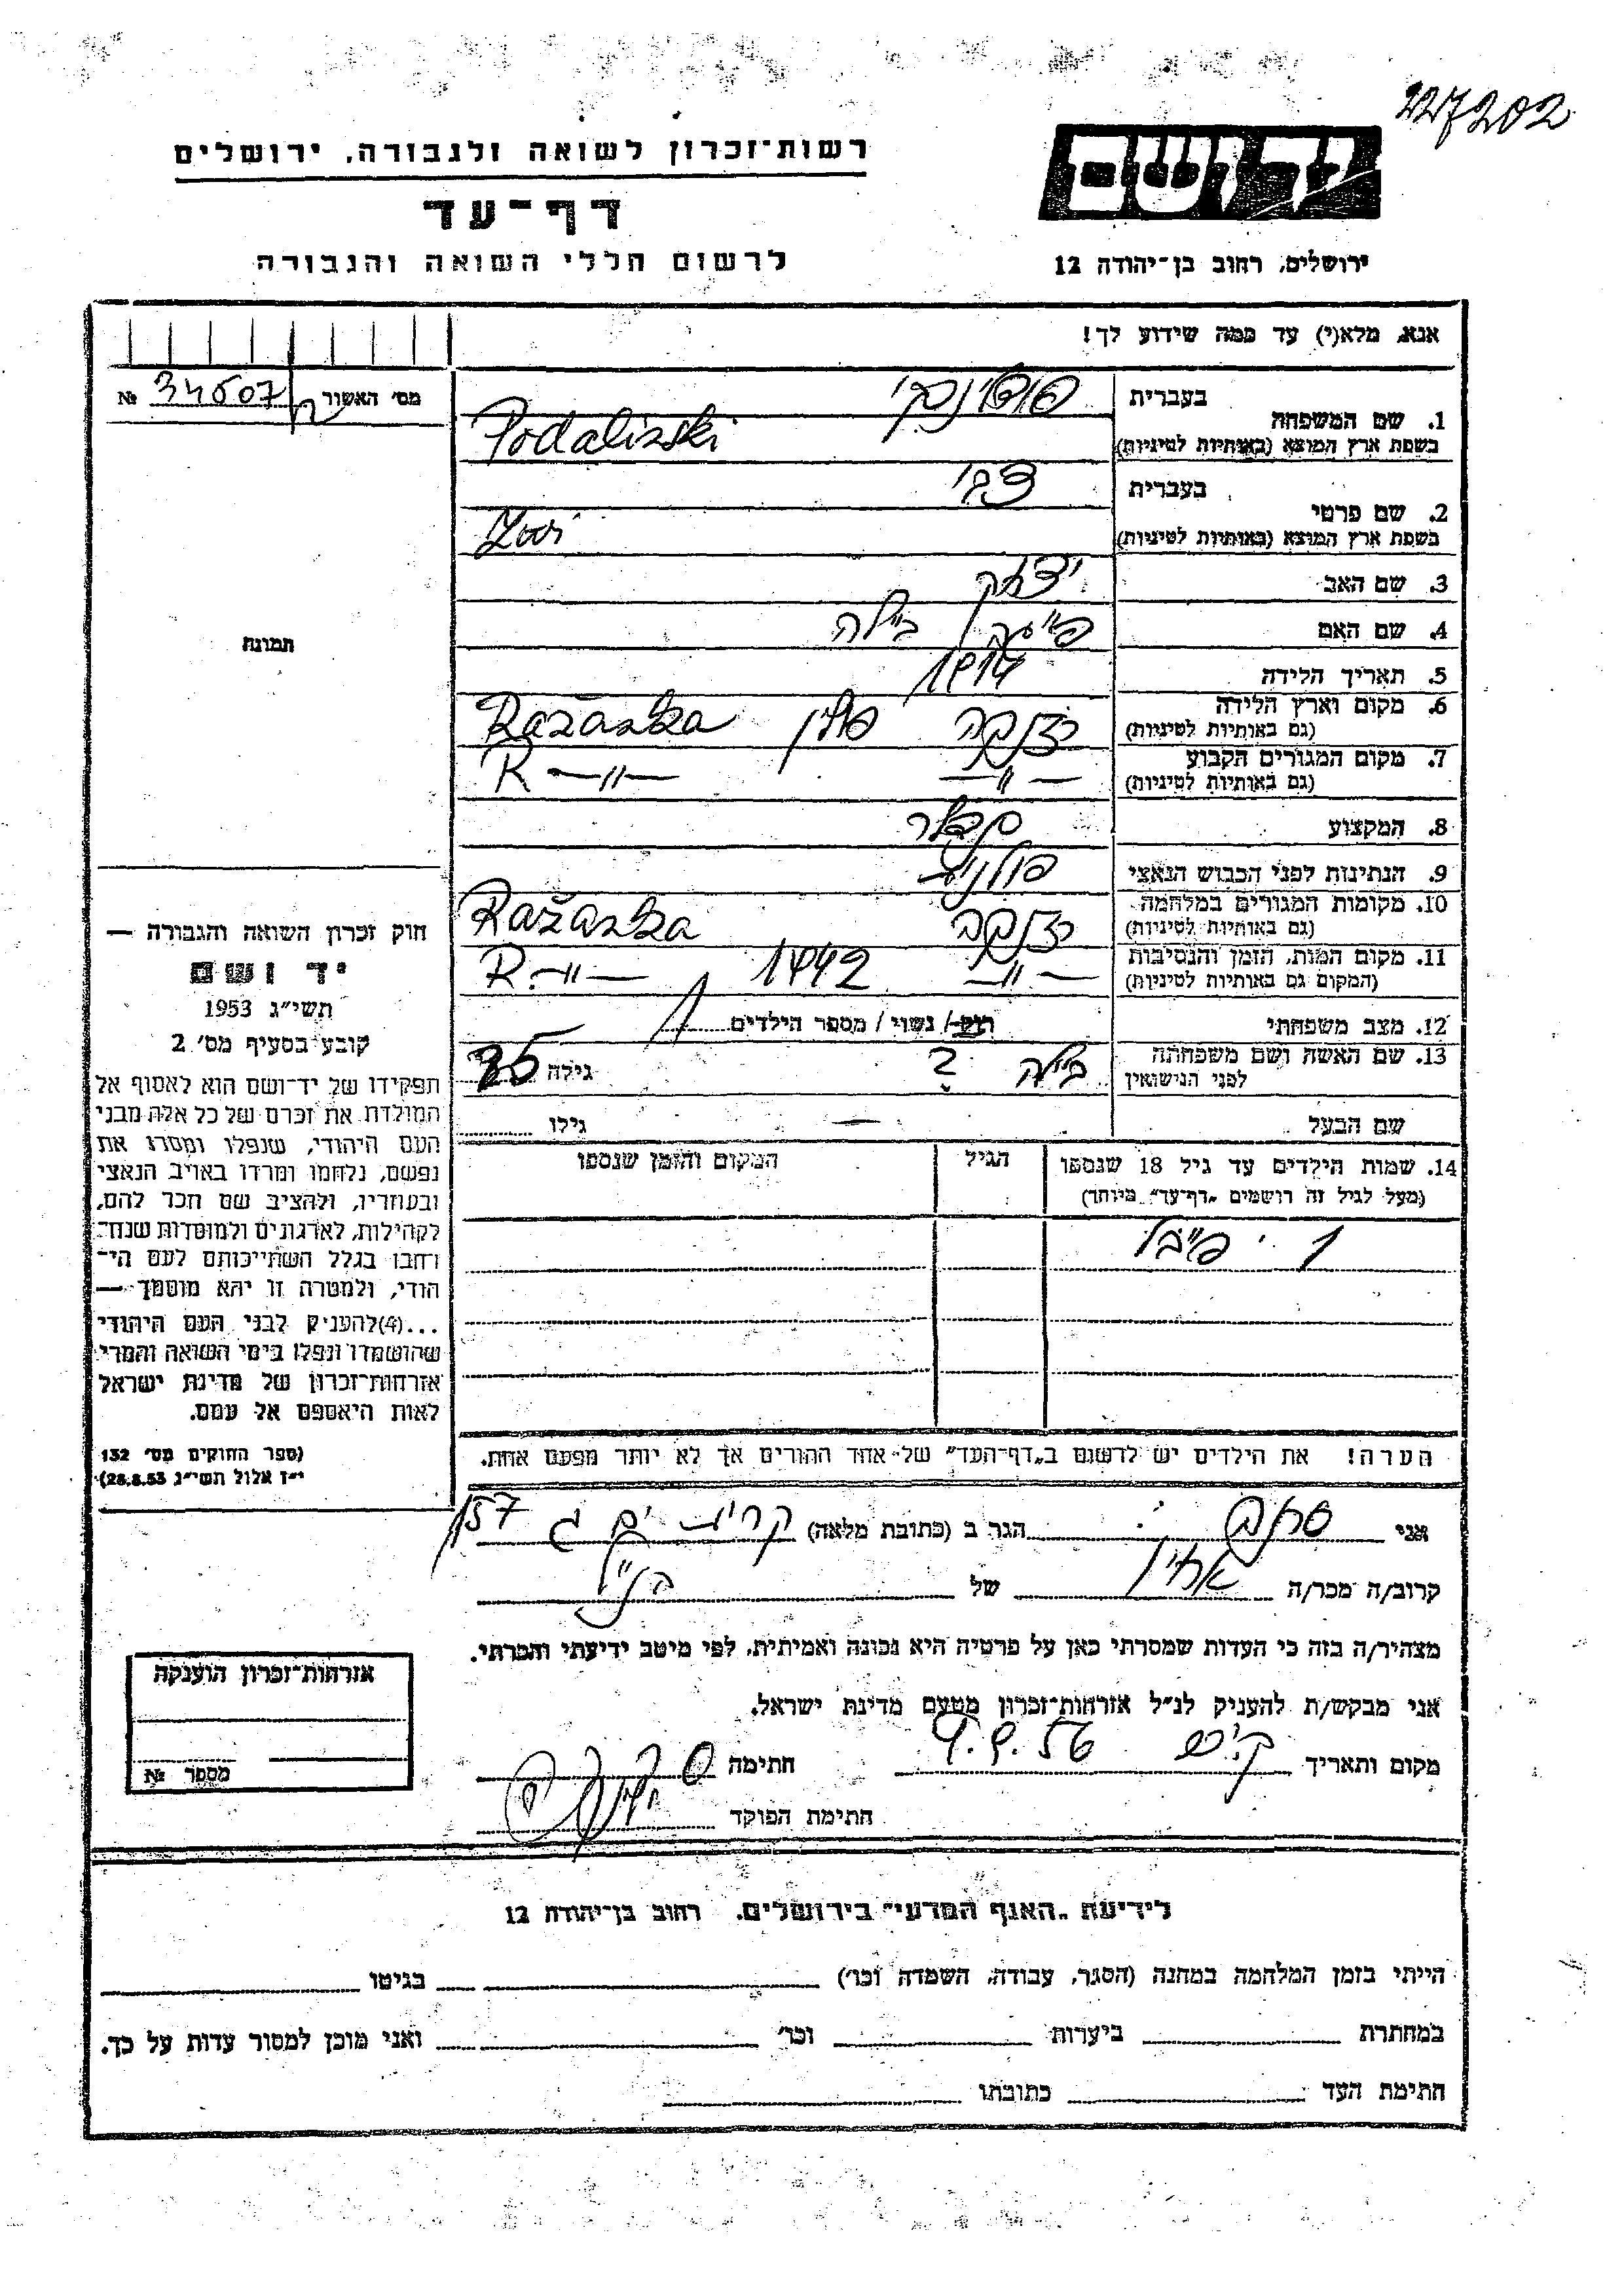 227202
רשות־זכרון לשואה ולגבורה, ירושלים
דף־עד
לרשום חללי השואה והגבורה
יד ושם
ירושלים, רחוב בן־יהודה 12
אנא, מלא(י) עד כמה שידוע לך!
מס׳ האשור 34607 №
תמונה
1. שם המשפחה בעברית
בשפת ארץ המוצא (באותיות לטיניות) Podalizski
2. שם פרטי בעברית צבי
בשפת ארץ המוצא (באותיות לטיניות) Zwi
3. שם האב יצחק
4. שם האם ביילה
5. תאריך הלידה
6. מקום וארץ הלידה פולין Ražanka
(גם באותיות לטיניות)
7. מקום המגורים הקבוע — 〃 — R — 〃 —
(גם באותיות לטיניות)
8. המקצוע
9. הנתינות לפני הכבוש הנאצי פולנית
10. מקומות המגורים במלחמה Ražanka
(גם באותיות לטיניות)
11. מקום המות, הזמן והנסיבות — 〃 — 1942 R — 〃 —
(המקום גם באותיות לטיניות)
12. מצב משפחתי רווק / נשוי / מספר הילדים 1
13. שם האשה ושם משפחתה ביילה ? גילה 25
לפני הנישואין
שם הבעל — גילו
14. שמות הילדים עד גיל 18 שנספו הגיל המקום והזמן שנספו
(מעל לגיל זה רושמים „דף־עד״ מיוחד)
1
הערה! את הילדים יש לרשום ב„דף־העד״ של אחד ההורים אך לא יותר מפעם אחת.
חוק זכרון השואה והגבורה —
יד ושם
תשי״ג 1953
קובע בסעיף מס׳ 2
תפקידו של יד־ושם הוא לאסוף אל
המולדת את זכרם של כל אלה מבני
העם היהודי, שנפלו ומסרו את
נפשם, נלחמו ומרדו באויב הנאצי
ובעוזריו, ולהציב שם וזכר להם,
לקהילות, לארגונים ולמוסדות שנח־
רבו בגלל השתייכותם לעם הי־
הודי, ולמטרה זו יהא מוסמך —
...(4)להעניק לבני העם היהודי
שהושמדו ונפלו בימי השואה והמרי
אזרחות־זכרון של מדינת ישראל
לאות היאספם אל עמם.
(ספר החוקים מס׳ 132
י״ז אלול תשי״ג 28.8.53)
אני הגר ב (כתובת מלאה) קרית ים ג 157
קרוב/ה מכר/ה של הנ״ל
מצהיר/ה בזה כי העדות שמסרתי כאן על פרטיה היא נכונה ואמיתית, לפי מיטב ידיעתי והכרתי.
אני מבקש/ת להעניק לנ״ל אזרחות־זכרון מטעם מדינת ישראל.
מקום ותאריך 9.9.56 חתימה
חתימת הפוקד
אזרחות־זכרון הוענקה
מספר №
לידיעת „האגף המדעי״ בירושלים, רחוב בן־יהודה 12
הייתי בזמן המלחמה במחנה (הסגר, עבודה, השמדה וכו׳) בגיטו
במחתרת ביערות וכו׳ ואני מוכן למסור עדות על כך.
חתימת העד כתובתו